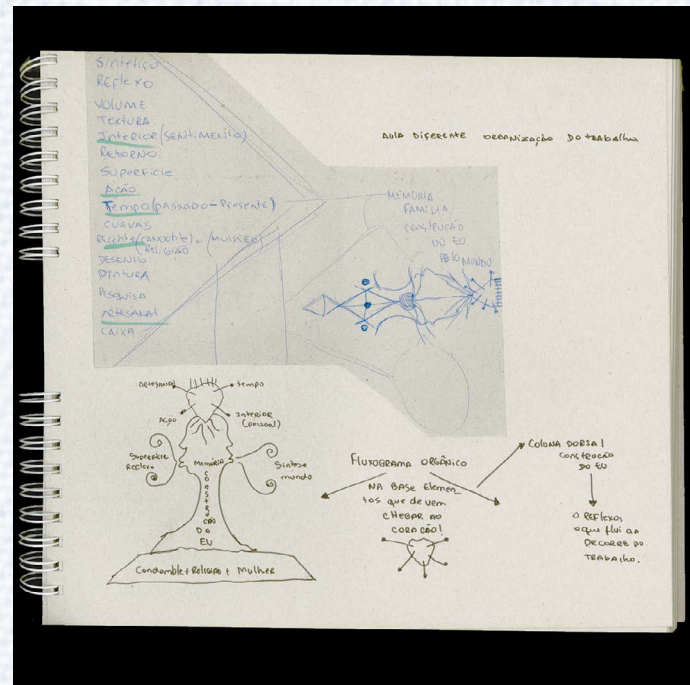 Sintético
Reflexo
VOLUME
TEXTURA
Interior (SENTIMENTO)
RETORNO
SUPERFÍCIE
AÇÃO
Tempo (PASSADO-Presente)
CURVAS
(RELIGIÃO
DESENHO
PINTURA
PESQUISA
ARTESANAL
CAIXA
AULA DIFERENTE ORGANIZAÇÃO DO TRABALHO
MEMÓRIA
FAMÍLIA
CONSTRUÇÃO
DO EU
PELO MUNDO
Artesanal
tempo
Ação
Interior
(pessoal)
Superfície
Reflexo
Memória
Síntese
mundo
CONSTRUÇÃO
DO
EU
Condomble + Religião + Mulher
FLUXOGRAMA ORGÂNICO
NA BASE Elemen
tos que devem
CHEGAR AO
CORAÇÃO!
COLUNA DORSAL
CONSTRUÇÃO
DO EU
O REFLEXOS
o que flui ou
DECORRE DO
TRABALHO.